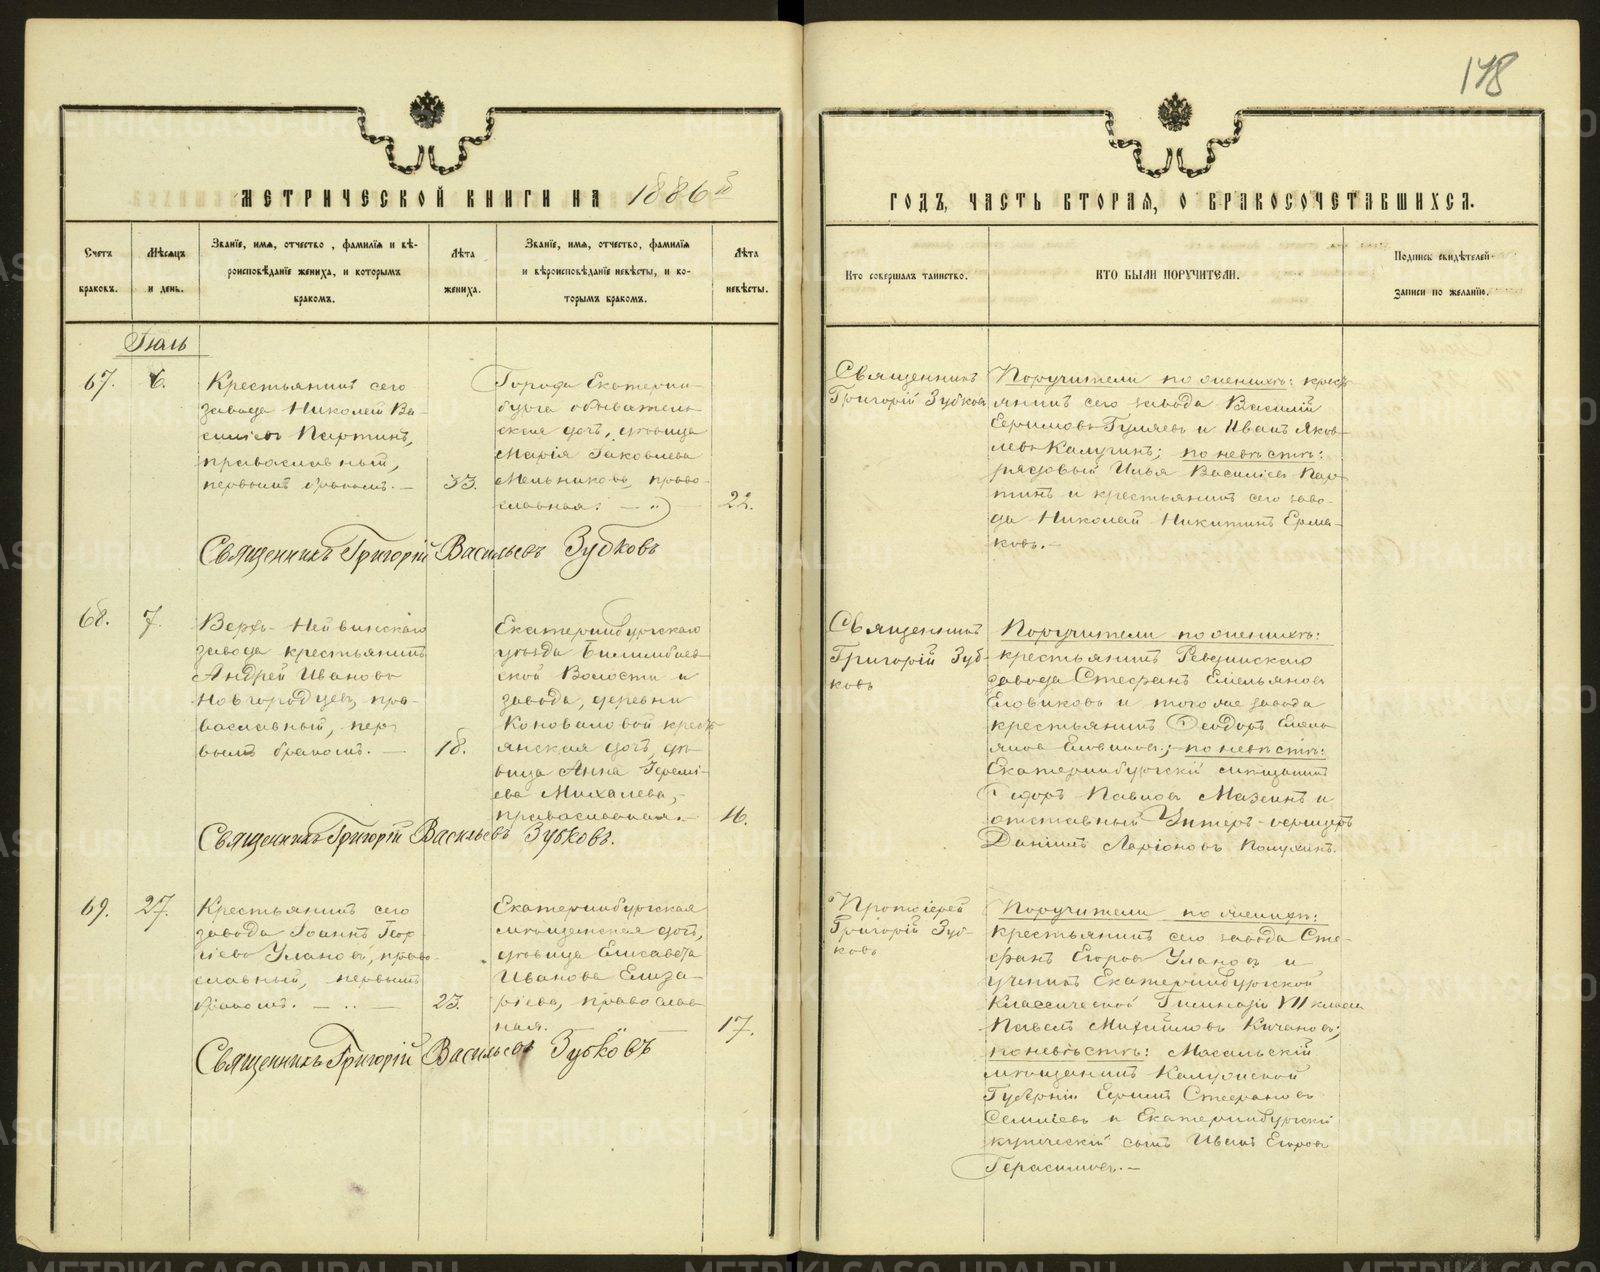 178
МЕТРИЧЕСКОЙ КНИГИ НА 1886й
ГОДЪ, ЧАСТЬ ВТОРАЯ, О БРАКОСОЧЕТАВШИХСЯ.
Счетъ браковъ.
Мѣсяцъ и день.
Званіе, имя, отчество, фамилія и вѣ-
роисповѣданіе жениха, и которымъ
бракомъ.
Лѣта жениха.
Званіе, имя, отчество, фамилія
и вѣроисповѣданіе невѣсты, и ко-
торымъ бракомъ.
Лѣта невѣсты.
Кто совершалъ таинство.
КТО БЫЛИ ПОРУЧИТЕЛИ.
Подпись свидѣтелей
записи по желанію.
Іюль
67.
6.
Крестьянинъ сего
завода Николай Ва-
сильевъ Партинъ,
православный,
первымъ бракомъ. —
33.
Города Екатерин-
бурга обыватель-
ская дочь, дѣвица
Марія Іаковлева
Мельникова, право-
славная.
22.
Священникъ
Григорій Зубковъ
Поручители по женихѣ: кресть
янинъ сего завода Василій
Ефимовъ Гуляевъ и Иванъ Яков-
левъ Калугинъ; по невѣстѣ:
рядовый Илья Василіевъ Пар-
тинъ и крестьянинъ сего заво-
да Николай Никитинъ Ерма-
ковъ. —
Священникъ Григорій Васильевъ Зубковъ
68.
7.
Верхъ-Нейвинскаго
завода крестьянинъ
Андрей Ивановъ
Новгородцевъ, пра-
вославный, пер
вымъ бракомъ. —
18.
Екатеринбургскаго
уѣзда Билимбаев-
ской Волости и
завода, деревни
Коноваловой кресть
янская дочь, дѣ-
вица Анна Іеремі-
ева Михалева,
православная. —
16.
Священникъ
Григорій Зуб-
ковъ
Поручители по женихѣ:
крестьянинъ Ревдинскаго
завода Стефанъ Емельяновъ
Еловиковъ и того же завода
крестьянинъ Ѳеодоръ Емель
яновъ Еловиковъ; по невѣстѣ:
Екатеринбургскій мѣщанинъ
Ѳедоръ Павловъ Мазеинъ и
отставный Унтеръ-офицеръ
Даніилъ Ларіоновъ Полухинъ.
Священникъ Григорій Васильевъ Зубковъ.
69.
27.
Крестьянинъ сего
завода Іоаннъ Геор
гіевъ Улановъ, право-
славный, первымъ
бракомъ. —
23.
Екатеринбургская
мѣщанская дочь,
дѣвица Елисавета
Иванова Елиза-
рьева, православ
ная. —
17.
Протоіерей
Григорій Зуб-
ковъ
Поручители по женихѣ:
крестьянинъ сего завода Сте-
фанъ Егоровъ Улановъ и
ученикъ Екатеринбургской
Классической Гимназіи VII класса
Павелъ Михайловъ Кичановъ;
по невѣстѣ: Масальскій
мѣщанинъ Калужской
Губерніи Ефимъ Стефановъ
и Екатеринбургскій
купеческій сынъ Иванъ Егоровъ
Герасимовъ. —
Священникъ Григорій Васильевъ Зубковъ
METRIKI.GASO-URAL.RU